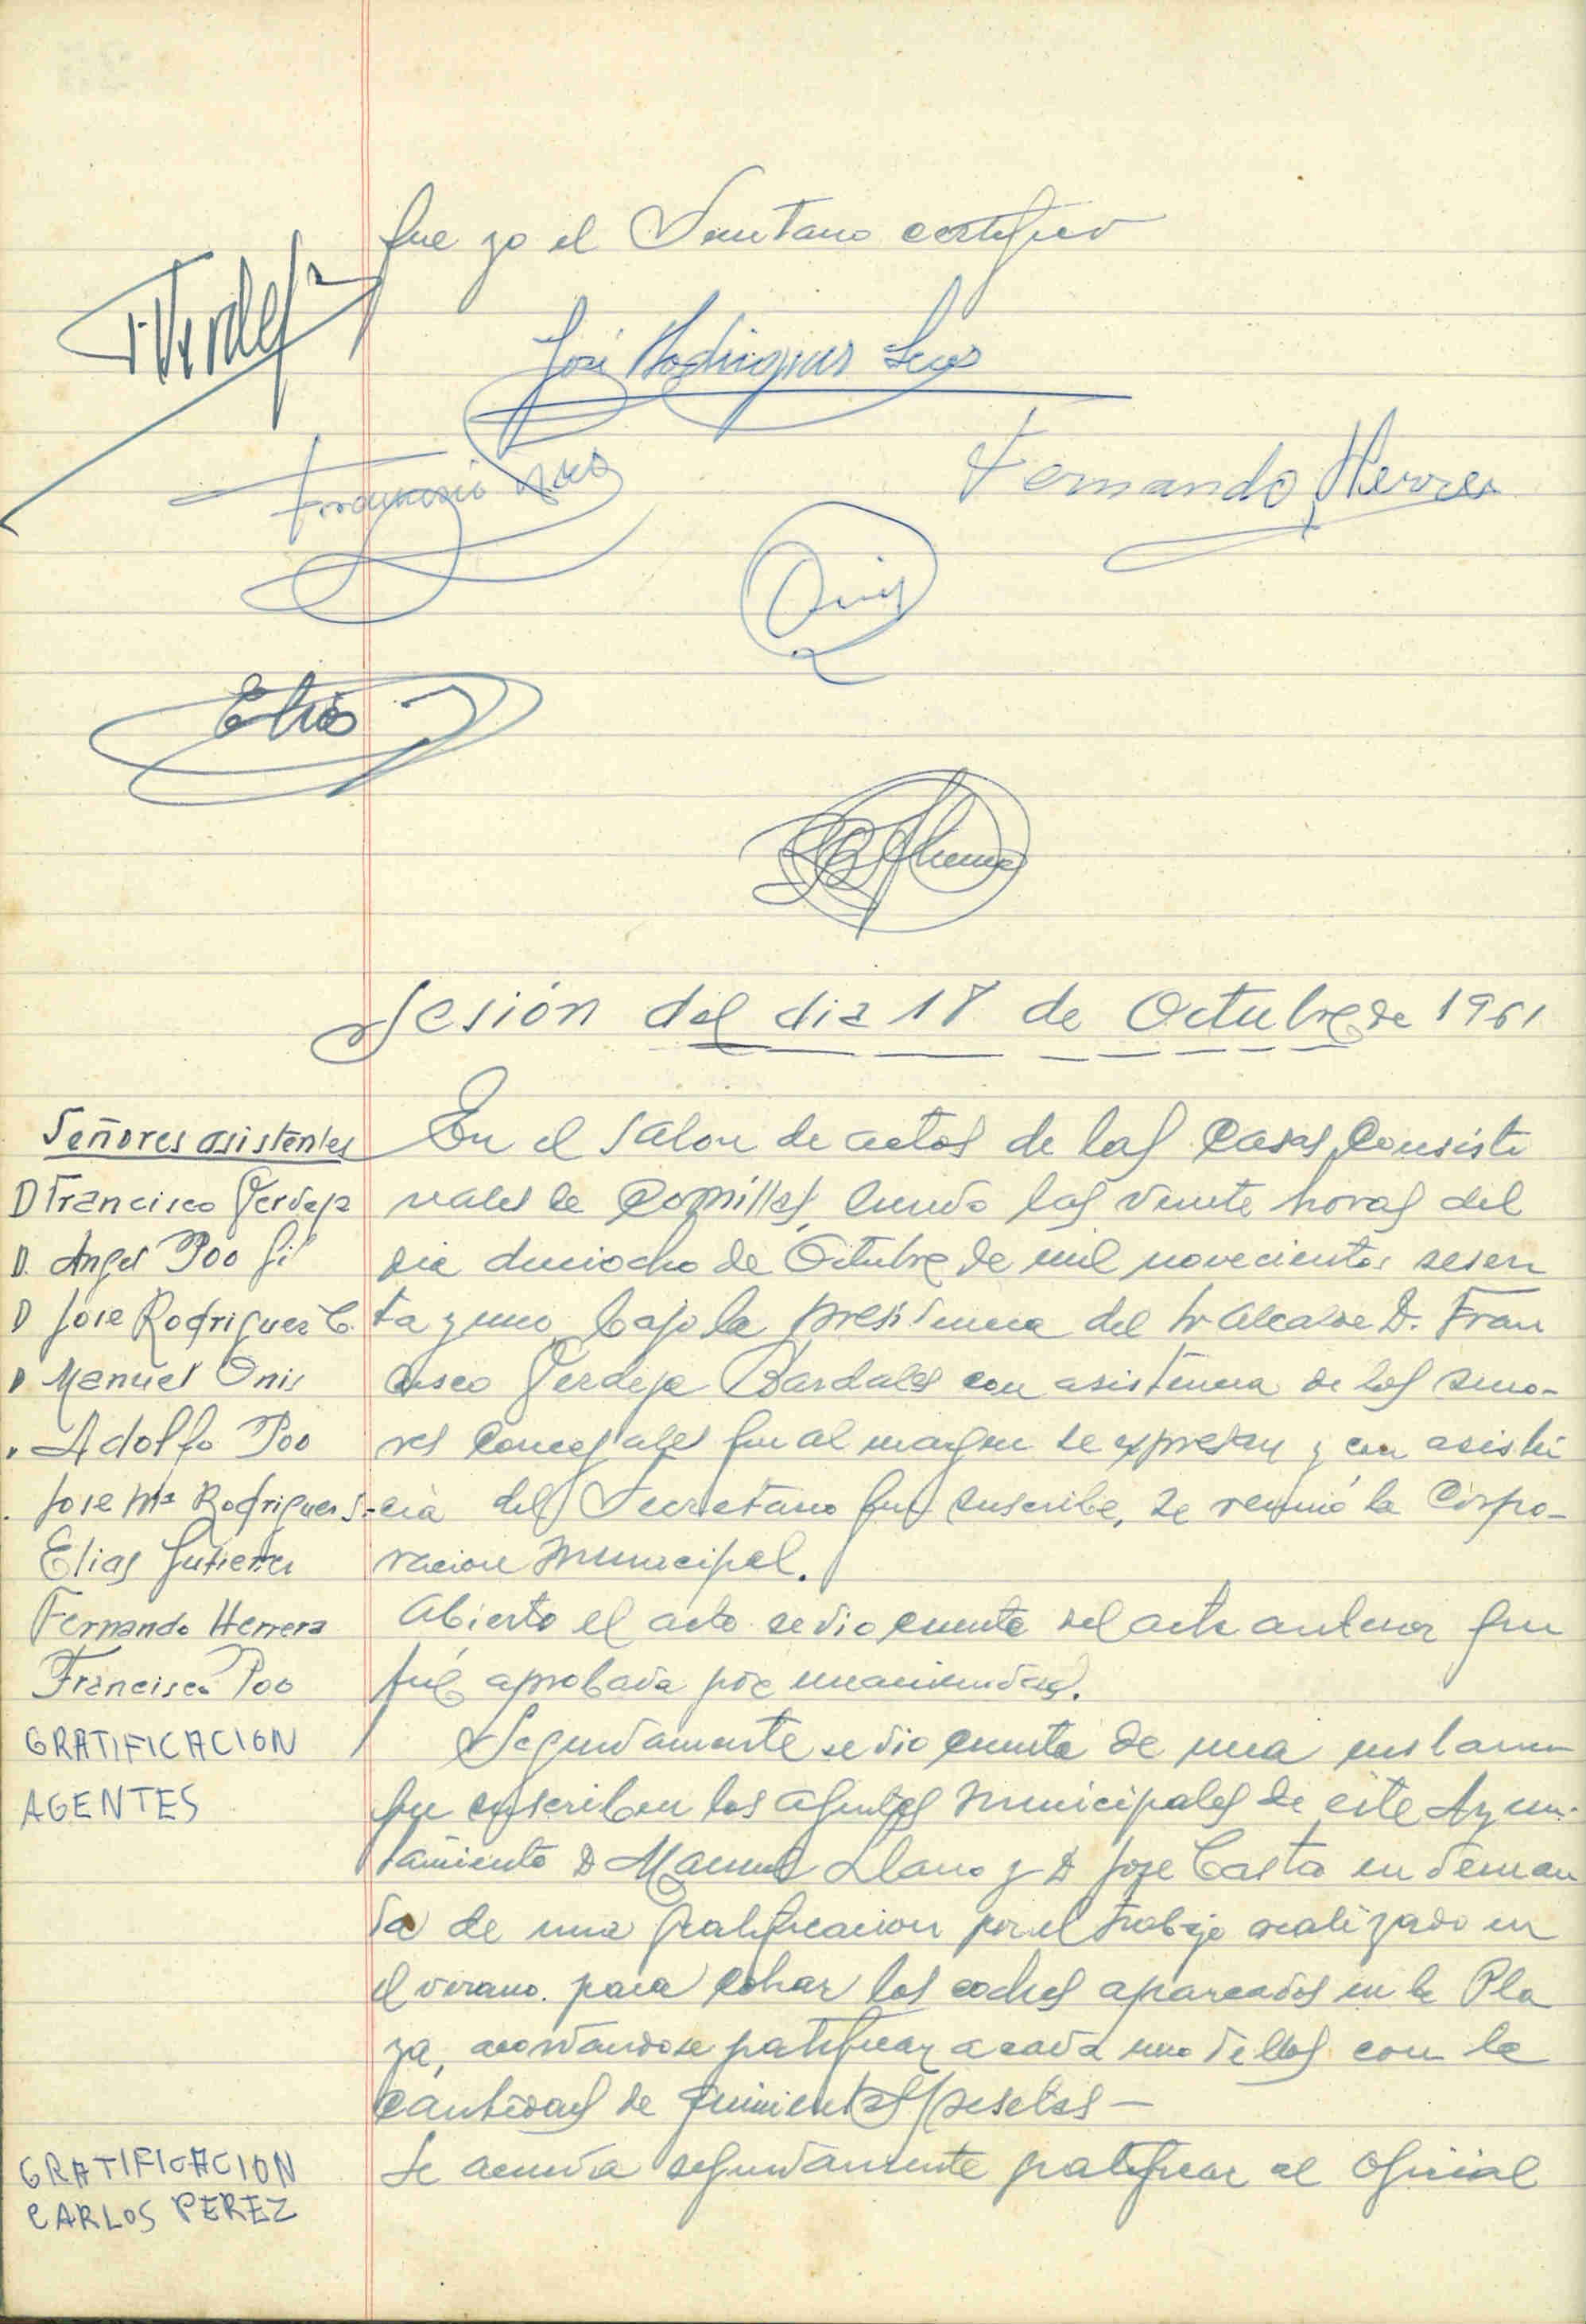 que yo el Secretario certifico
F. Verdeja
José Rodriguez
Francisco Poo
Fernando Herrera
Onis
Elias
Sesión del dia 18 de Octubre de 1961
Señores asistentes
D Francisco Verdeja
D. Angel Poo Gil
D Jose Rodriguez C.
D Manuel Onis
" Adolfo Poo
. Jose Mª Rodriguez S.
Elias Gutierrez
Fernando Herrera
Francisco Poo
GRATIFICACION
AGENTES
GRATIFICACION
CARLOS PEREZ
En el salon de actos de las Casas Consisto
riales de Comillas, siendo las veinte horas del
dia dieciocho de Octubre de mil novecientos sesen
ta y uno, bajo la presidencia del Sr Alcalde D. Fran
cisco Verdeja Bardales con asistencia de los seño-
res Concejales que al margen se expresan y con asisten
cia del Secretario que suscribe, se reunió la Corpo-
racion Municipal.
Abierto el acto se dio cuenta del acta anterior que
fué aprobada por unanimidad.
Seguidamente se dio cuenta de una instancia
que suscriben los agentes Municipales de este Ayun-
tamiento D Manuel Llano y D Jose Casta en deman
da de una gratificacion por el trabajo realizado en
el verano para cobrar los coches aparcados en la Pla
za, acordandose gratificar a cada uno de ellos con la
cantidad de quinientas pesetas —
Se acuerda seguidamente gratificar al oficial